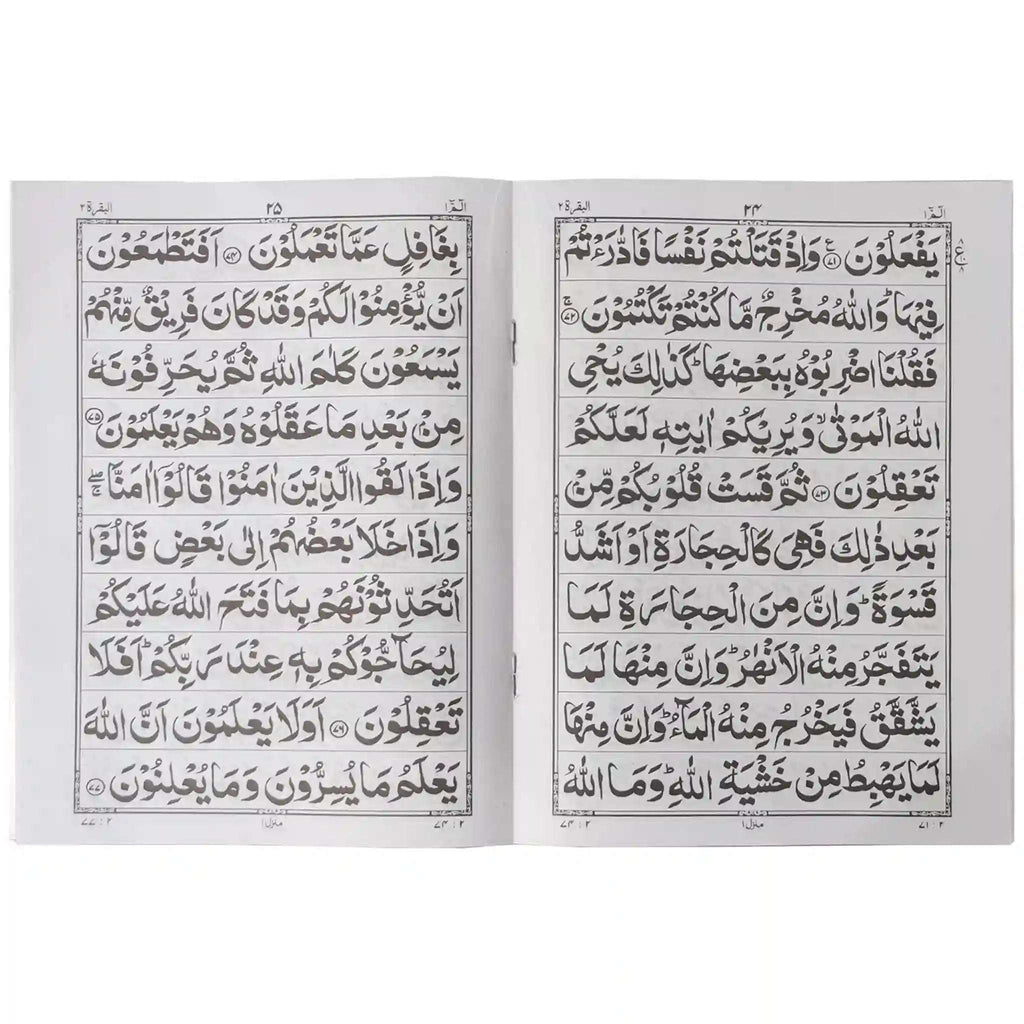 الٓمّٓ ١
٢۴
البقرة ٢
ع
يَفْعَلُوْنَ ۟﴿٧١﴾ وَاِذْ قَتَلْتُمْ نَفْسًا فَادّٰرَءْتُمْ
فِيْهَا ؕ وَاللّٰهُ مُخْرِجٌ مَّا كُنْتُمْ تَكْتُمُوْنَ ۚ﴿٧٢﴾
فَقُلْنَا اضْرِبُوْهُ بِبَعْضِهَا ؕ كَذٰلِكَ يُحْيِ
اللّٰهُ الْمَوْتٰى ۙ وَيُرِيْكُمْ اٰيٰتِهٖ لَعَلَّكُمْ
تَعْقِلُوْنَ ﴿٧٣﴾ ثُمَّ قَسَتْ قُلُوْبُكُمْ مِّنْ
بَعْدِ ذٰلِكَ فَهِىَ كَالْحِجَارَةِ اَوْ اَشَدُّ
قَسْوَةً ؕ وَاِنَّ مِنَ الْحِجَارَةِ لَمَا
يَتَفَجَّرُ مِنْهُ الْاَنْهٰرُ ؕ وَاِنَّ مِنْهَا لَمَا
يَشَّقَّقُ فَيَخْرُجُ مِنْهُ الْمَآءُ ؕ وَاِنَّ مِنْهَا
لَمَا يَهْبِطُ مِنْ خَشْيَةِ اللّٰهِ ؕ وَمَا اللّٰهُ
٢ : ٧١
منزل ١
٢ : ٧۴
الٓمّٓ ١
٢۵
البقرة ٢
بِغَافِلٍ عَمَّا تَعْمَلُوْنَ ﴿٧۴﴾ اَفَتَطْمَعُوْنَ
اَنْ يُّؤْمِنُوْا لَكُمْ وَقَدْ كَانَ فَرِيْقٌ مِّنْهُمْ
يَسْمَعُوْنَ كَلٰمَ اللّٰهِ ثُمَّ يُحَرِّفُوْنَهٗ
مِنْۢ بَعْدِ مَا عَقَلُوْهُ وَهُمْ يَعْلَمُوْنَ ﴿٧۵﴾
وَاِذَا لَقُوا الَّذِيْنَ اٰمَنُوْا قَالُوْٓا اٰمَنَّا ۖۚ
وَاِذَا خَلَا بَعْضُهُمْ اِلٰى بَعْضٍ قَالُوْٓا
اَتُحَدِّثُوْنَهُمْ بِمَا فَتَحَ اللّٰهُ عَلَيْكُمْ
لِيُحَآجُّوْكُمْ بِهٖ عِنْدَ رَبِّكُمْ ؕ اَفَلَا
تَعْقِلُوْنَ ﴿٧۶﴾ اَوَلَا يَعْلَمُوْنَ اَنَّ اللّٰهَ
يَعْلَمُ مَا يُسِرُّوْنَ وَمَا يُعْلِنُوْنَ ﴿٧٧﴾
٢ : ٧۴
منزل ١
٢ : ٧٧